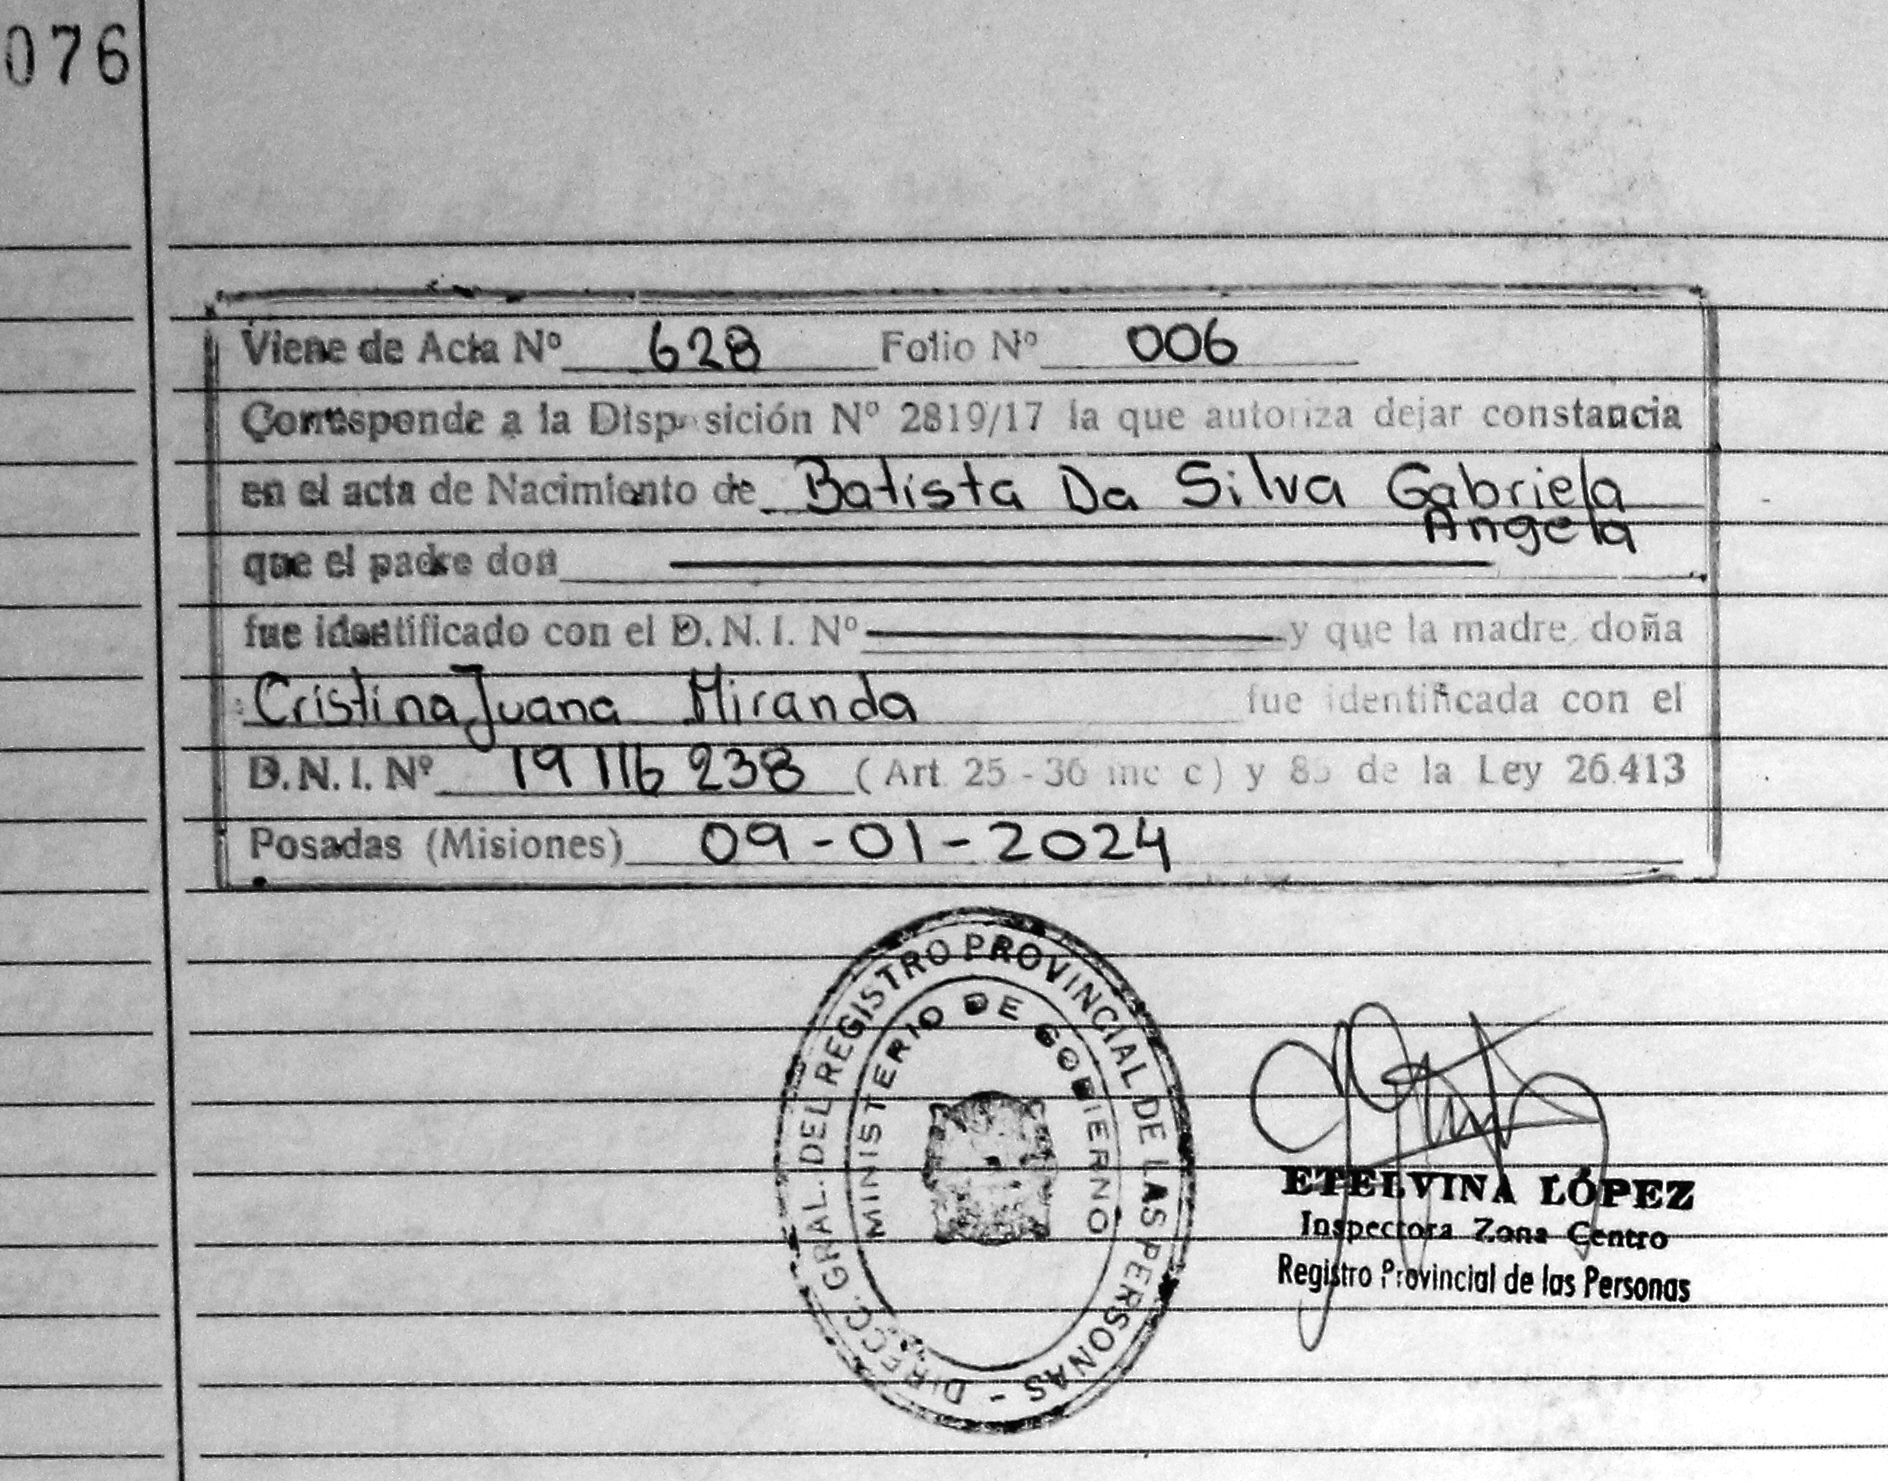 076
Viene de Acta Nº 628 Folio Nº 006
Corresponde a la Disposición Nº 2819/17 la que autoriza dejar constancia
en el acta de Nacimiento de Batista Da Silva Gabriela
Angela
que el padre don
fue identificado con el D.N.I. Nº y que la madre doña
Cristina Juana Miranda fue identificada con el
D.N.I. Nº 19116238 (Art. 25 - 36 inc c) y 85 de la Ley 26.413
Posadas (Misiones) 09-01-2024
DIRECC. GRAL. DEL REGISTRO PROVINCIAL DE LAS PERSONAS -
MINISTERIO DE GOBIERNO
ETELVINA LÓPEZ
Inspectora Zona Centro
Registro Provincial de las Personas